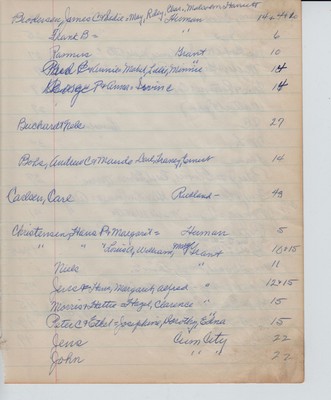 Brodersen, James C + Sadie = May, Riley, Clara, Malvern, Harriett
" Herman 14 + 4 + 10
Frank B = " 6
Rasmus Grant 10
Fred B + Annie, Mabel, Eddie, Minnie 14
George P + Anna = Irvine 14
Buchardt Nels 27
Bobs, Andrew C + Maude Earl, Frances, Ernest 14
Carlsen, Carl Richland - 43
Christensen, Hans P + Margaret = Herman 5
" " " Louise, William, Grant 10 + 15
Nick " 11
Jess + Hans, Margaret, Alfred " 12 + 15
Morris + Hattie = Hazel, Clarence " 15
Peter C + Ethel = Josephine, Dorothy, Edna " 15
Jens Cum City 22
John " " 22